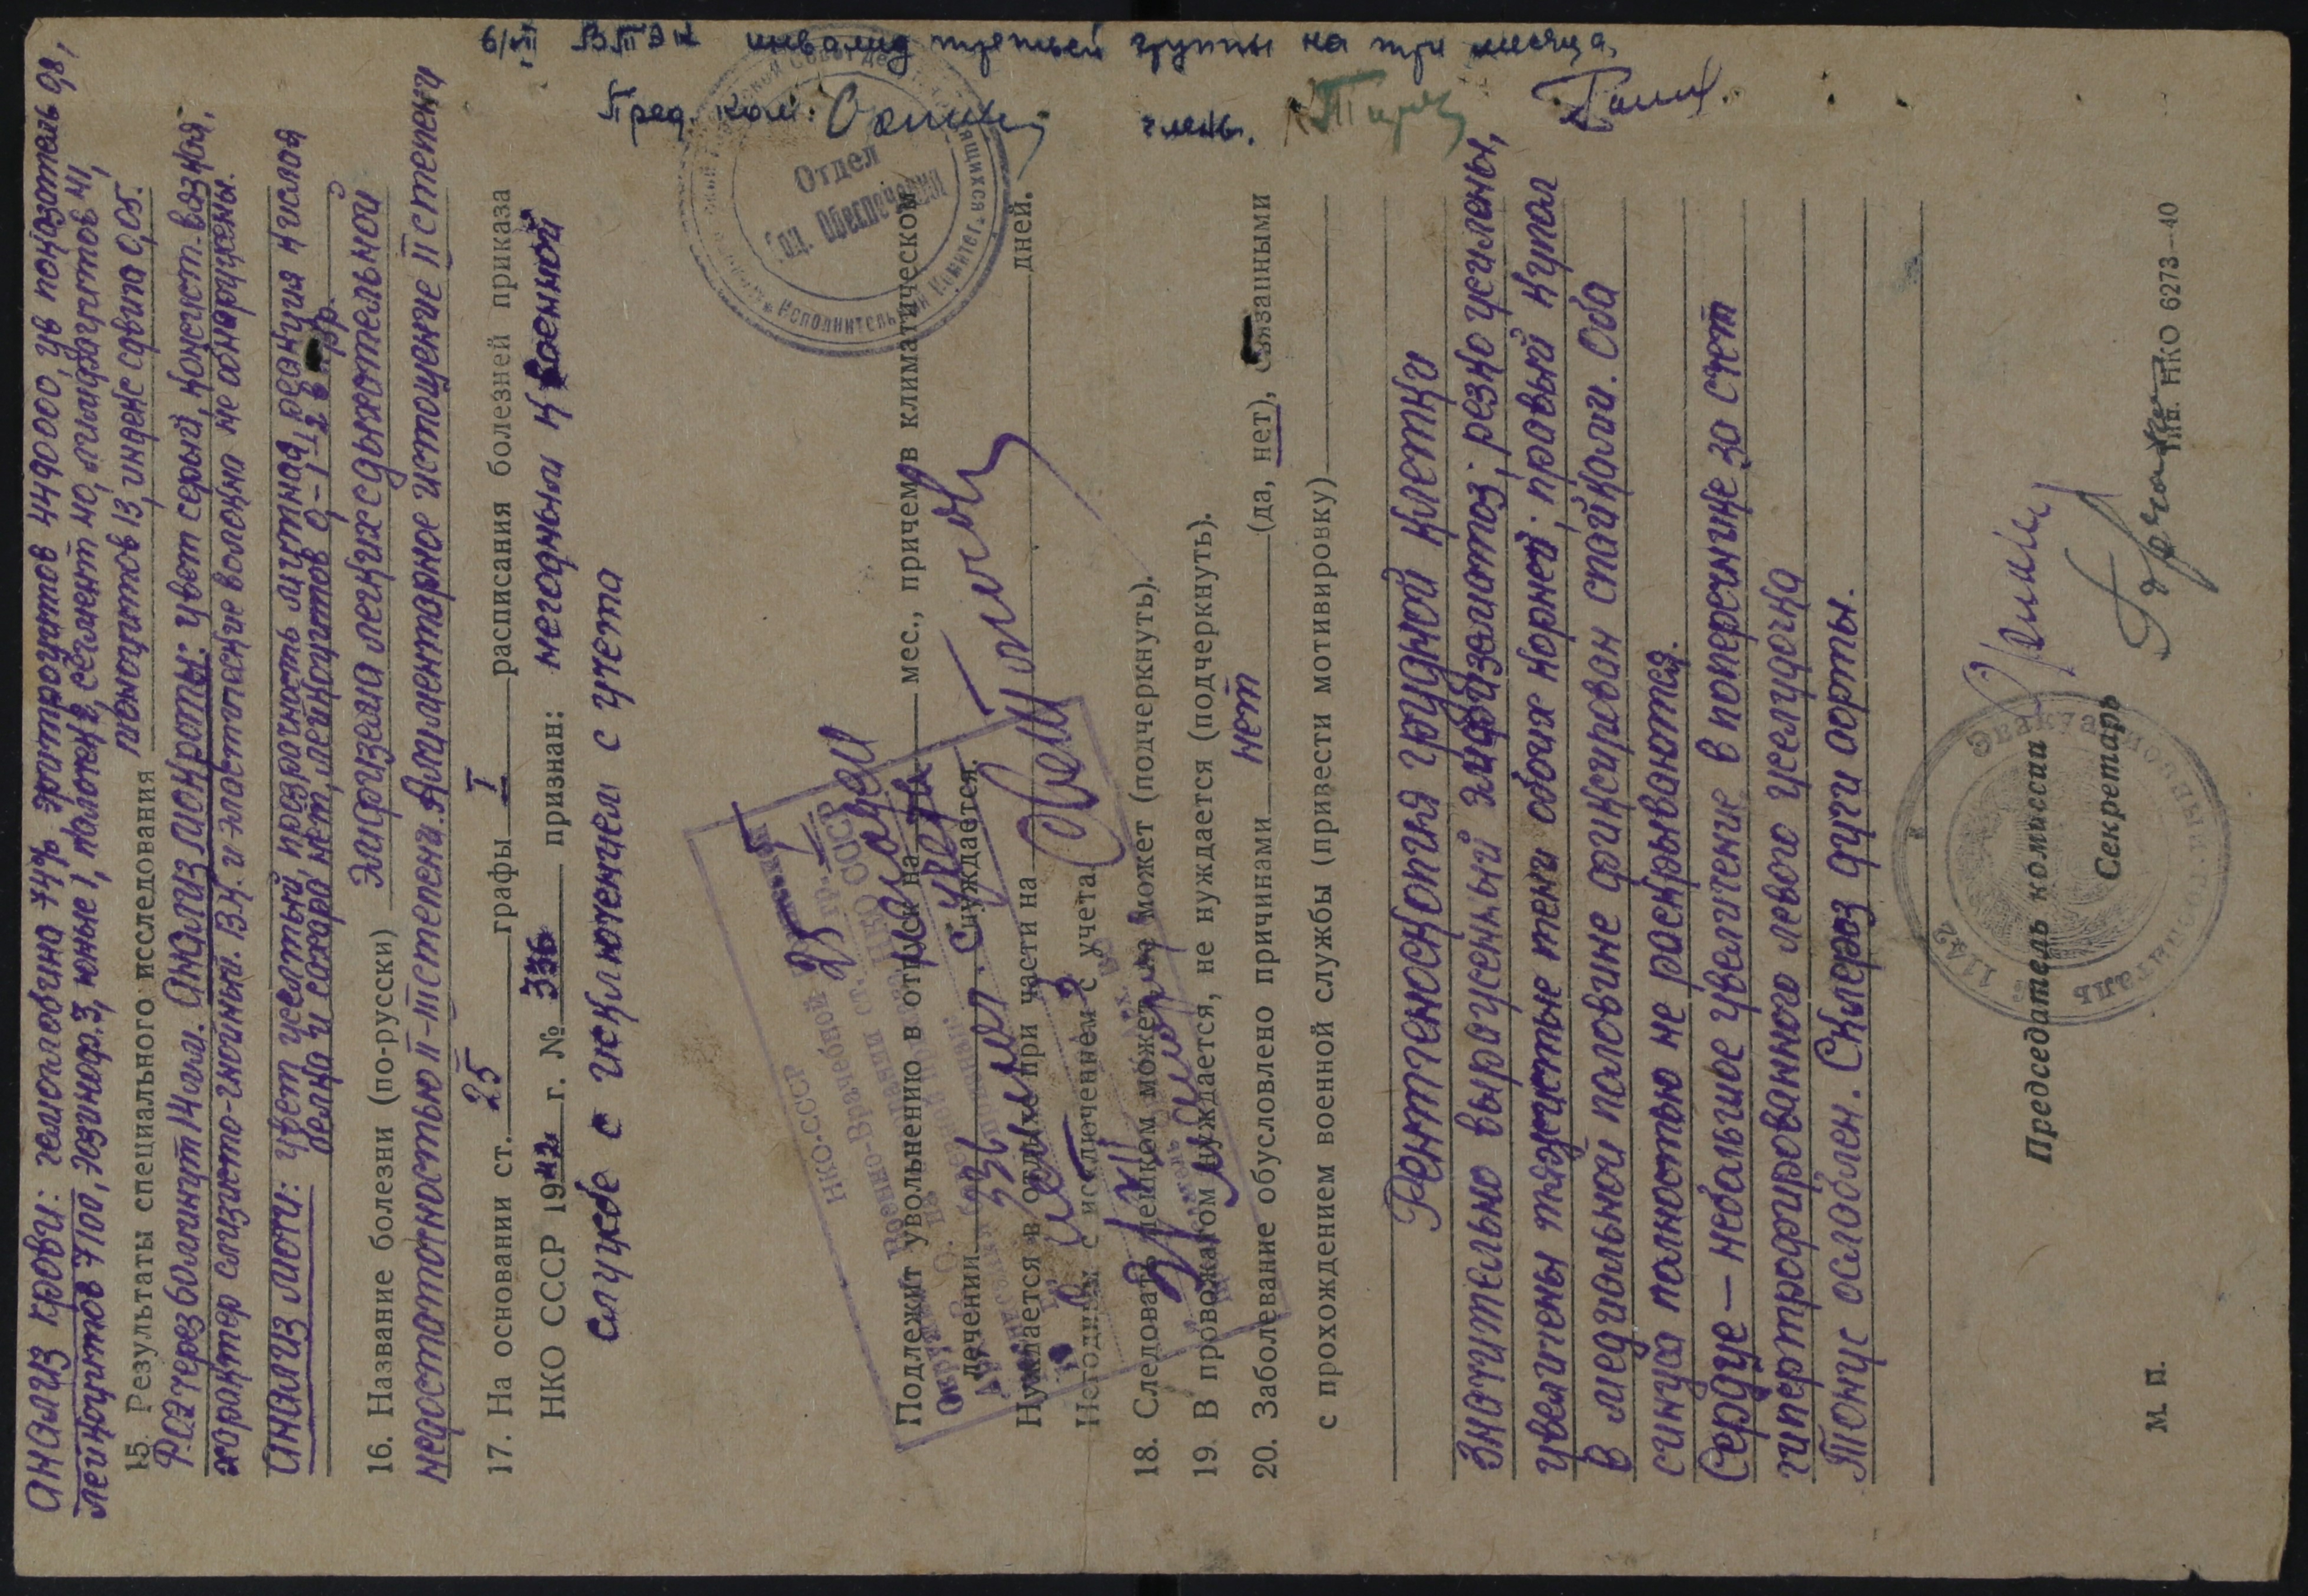 Анализ крови: гемоглобина 74% эритроцитов 4490000, цв показатель 0,8,
лейкоцитов 7100, эозиноф. 3, юные 1, палочек 2, сегмент 40, лимфоцитов 41,
15. Результаты специального исследования моноцитов 13, индекс сдвига 0,05.
РОЭ через 60 минут 14 мм. Анализ мокроты: цвет серый, консист. вязкая,
характер слизисто-гнойный. В.К. и эластические волокна не обнаружены.
Анализ мочи: цвет желтый, прозрачность мутная, реакция кислая
белка и сахара нет, лейкоцитов 0-1-2 в пр.
16. Название болезни (по-русски) Эмфизема легких с дыхательной
недостаточностью II-III степени. Алиментарное истощение II степени
17. На основании ст. 25 графы I расписания болезней приказа
НКО СССР 1942 г. № 336 признан: негодным к военной
службе с исключением с учета
6/VII ВТЭК инвалид третьей группы на три месяца.
Пред. ком.
члены.
Отдел
Соц. Обеспечения
Исполнительный Комитет
НКО-СССР
Подлежит увольнению в отпуск на мес., причем в климатическом
лечении нуждается.
Нуждается в отдыхе при части на дней.
Негодным с исключением с учета
18. Следовать пешком может, не может (подчеркнуть).
19. В провожатом нуждается, не нуждается (подчеркнуть).
20. Заболевание обусловлено причинами нет (да, нет), связанными
с прохождением военной службы (привести мотивировку)
Рентгеноскопия грудной клетки
Значительно выраженный эмфизематоз; резко усилены,
увеличены тяжистые тени обоих корней; правый купол
в медиальной половине фиксирован спайками. Оба
синуса полностью не раскрываются.
Сердце — небольшое увеличение в поперечнике за счет
гипертрофированного левого желудочка
Тонус ослаблен. Склероз дуги аорты.
Председатель комиссии
Секретарь
1142
Эвакуационный
Госпиталь
М. П.
Тип. НКО 6273—40